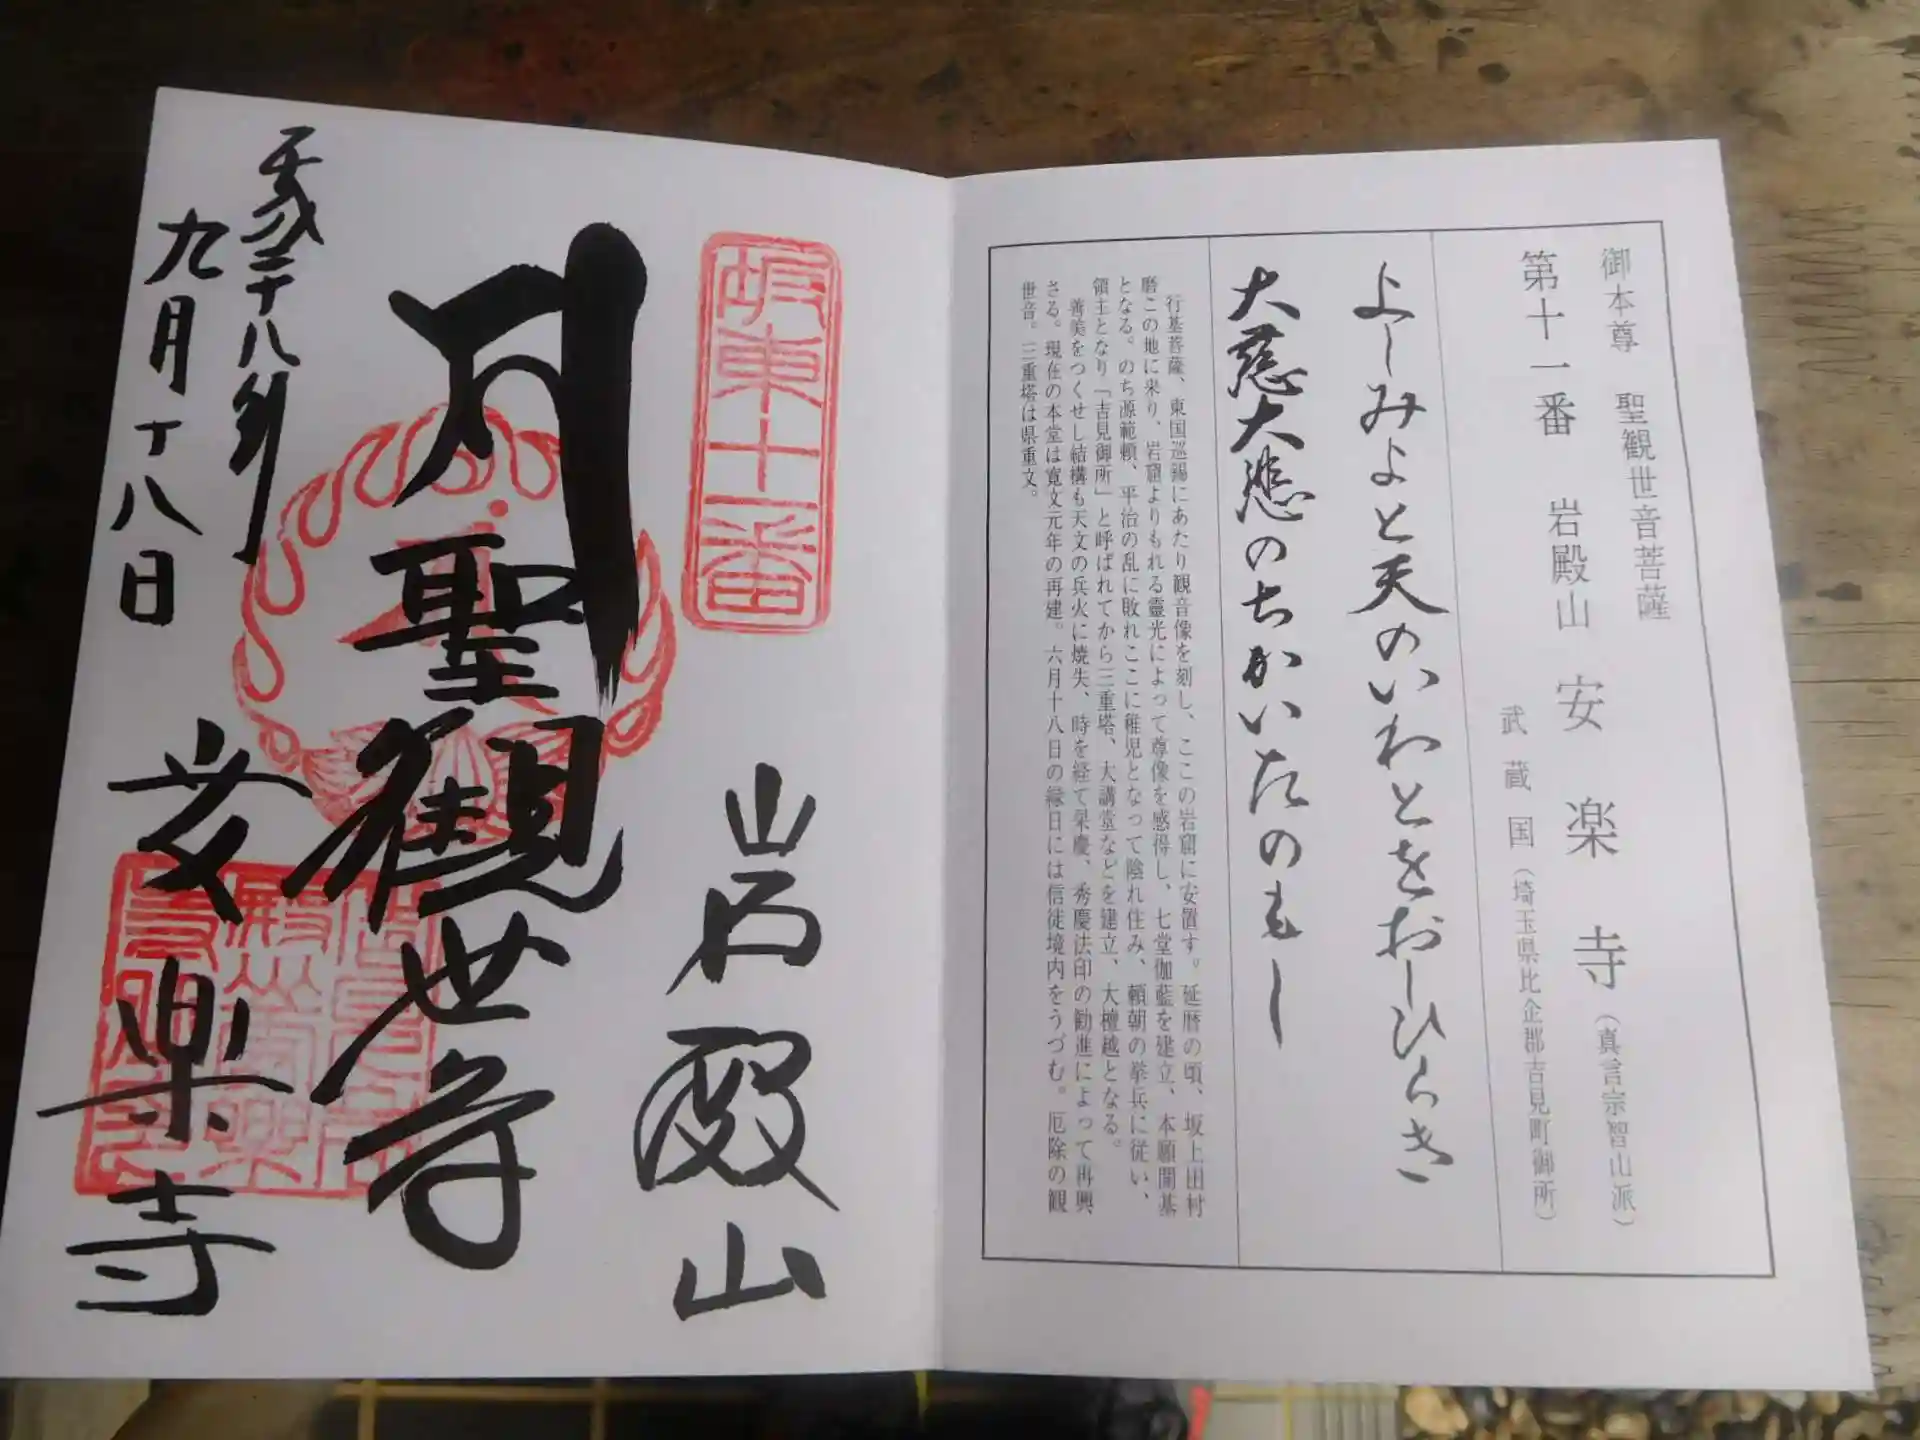 御本尊　聖観世音菩薩
第十一番　岩殿山　安楽寺（真言宗智山派）
武蔵国（埼玉県比企郡吉見町御所）
よしみよと天のいわとをおしひらき
大慈大悲のちかいたのもし
行基菩薩、東国巡錫にあたり観音像を刻し、ここの岩窟に安置す。延暦の頃、坂上田村
磨この地に来り、岩窟よりもれる霊光によって尊像を感得し、七堂伽藍を建立、本願開基
となる。のち源範頼、平治の乱に敗れここに稚児となって陰れ住み、頼朝の挙兵に従い、
領主となり「吉見御所」と呼ばれてから三重塔、大講堂などを建立、大檀越となる。
善美をつくせし結構も天文の兵火に焼失、時を経て杲慶、秀慶法印の勧進によって再興
さる。現在の本堂は寛文元年の再建。六月十八日の縁日には信徒境内をうづむ。厄除の観
世音。三重塔は県重文。
坂東十一番
岩殿山
聖観世音
平成二十八年
九月十八日
安楽寺